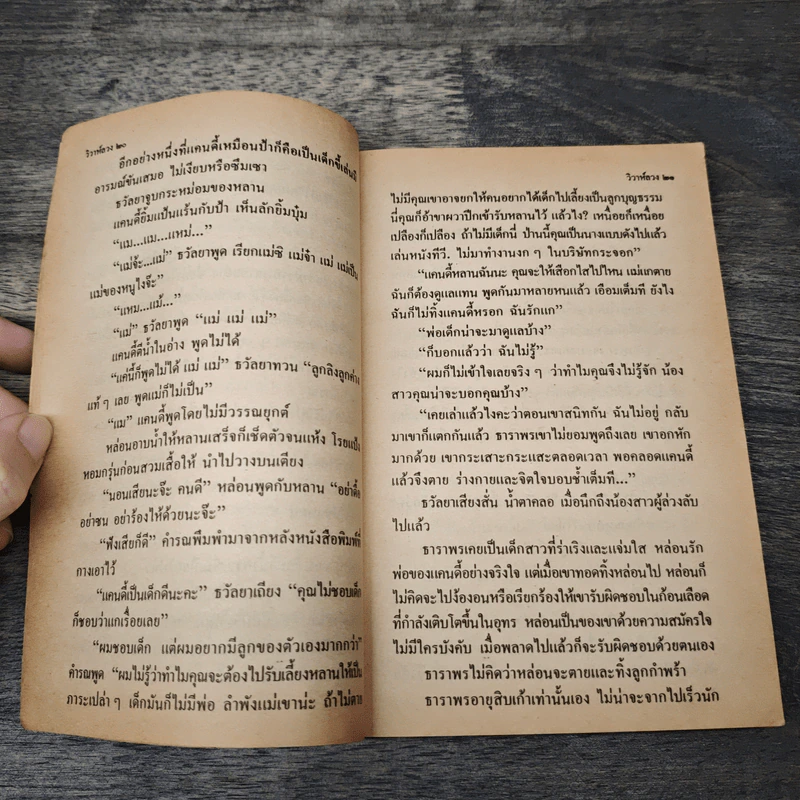 วิวาห์ลวง ๒๐
อีกอย่างหนึ่งที่แคนดี้เหมือนป้าก็คือเป็นเด็กขี้เล่นมี
อารมณ์ขันเสมอ ไม่เงียบหรือซึมเซา
ธวัลยาจูบกระหม่อมของหลาน
แคนดี้ยิ้มแป้นแร้นกับป้า เห็นลักยิ้มบุ๋ม
“แม...แม...แหม่...”
“แม่จ้ะ...แม่” ธวัลยาพูด เรียกแม่ซิ แม่จ๋า แม่ แม่เป็น
แม่ของหนูไงจ๊ะ”
“แหม...แม้...”
“แม่” ธวัลยาพูด “แม่ แม่ แม่”
แคนดี้ตีน้ำในอ่าง พูดไม่ได้
“แค่นี้ก็พูดไม่ได้ แม่ แม่” ธวัลยาทวน “ลูกลิงลูกค่าง
แท้ ๆ เลย พูดแม่ก็ไม่เป็น”
“แม” แคนดี้พูดโดยไม่มีวรรณยุกต์
หล่อนอาบน้ำให้หลานเสร็จก็เช็ดตัวจนแห้ง โรยแป้ง
หอมกรุ่นก่อนสวมเสื้อให้ นำไปวางบนเตียง
“นอนเสียนะจ๊ะ คนดี” หล่อนพูดกับหลาน “อย่าดื้อ
อย่าซน อย่าร้องไห้ด้วยนะจ๊ะ”
“ฟังเสียก็ดี” คำรณพึมพำมาจากหลังหนังสือพิมพ์ที่
กางเอาไว้
“แคนดี้เป็นเด็กดีนะคะ” ธวัลยาเถียง “คุณไม่ชอบเด็ก
ก็ชอบว่าแกเรื่อยเลย”
“ผมชอบเด็ก แต่ผมอยากมีลูกของตัวเองมากกว่า”
คำรณพูด “ผมไม่รู้ว่าทำไมคุณจะต้องไปรับเลี้ยงหลานให้เป็น
ภาระเปล่า ๆ เด็กมันก็ไม่มีพ่อ ลำพังแม่เขาน่ะ ถ้าไม่ตาย
วิวาห์ลวง ๒๑
ไม่มีคุณเขาอาจยกให้คนอยากได้เด็กไปเลี้ยงเป็นลูกบุญธรรม
นี่คุณก็อ้าขาผวาปีกเข้ารับหลานไว้ แล้วไง? เหนื่อยก็เหนื่อย
เปลืองก็เปลือง ถ้าไม่มีเด็กนี่ ป่านนี้คุณเป็นนางแบบดังไปแล้ว
เล่นหนังทีวี. ไม่มาทำงานงก ๆ ในบริษัทกระจอก”
“แคนดี้หลานฉันนะ คุณจะให้เสือกไสไปไหน แม่แกตาย
ฉันก็ต้องดูแลแทน พูดกันมาหลายหนแล้ว เอือมเต็มที ยังไง
ฉันก็ไม่ทิ้งแคนดี้หรอก ฉันรักแก”
“พ่อเด็กน่าจะมาดูแลบ้าง”
“ก็บอกแล้วว่า ฉันไม่รู้”
“ผมก็ไม่เข้าใจเลยจริง ๆ ว่าทำไมคุณจึงไม่รู้จัก น้อง
สาวคุณน่าจะบอกคุณบ้าง”
“เคยเล่าแล้วไงคะว่าตอนเขาสนิทกัน ฉันไม่อยู่ กลับ
มาเขาก็แตกกันแล้ว ธาราพรเขาไม่ยอมพูดถึงเลย เขาอกหัก
มากด้วย เขากระเสาะกระแสะตลอดเวลา พอคลอดแคนดี้
แล้วจึงตาย ร่างกายและจิตใจบอบช้ำเต็มที...”
ธวัลยาเสียงสั่น น้ำตาคลอ เมื่อนึกถึงน้องสาวผู้ล่วงลับ
ไปแล้ว
ธาราพรเคยเป็นเด็กสาวที่ร่าเริงและแจ่มใส หล่อนรัก
พ่อของแคนดี้อย่างจริงใจ แต่เมื่อเขาทอดทิ้งหล่อนไป หล่อนก็
ไม่คิดจะไปง้องอนหรือเรียกร้องให้เขารับผิดชอบในก้อนเลือด
ที่กำลังเติบโตขึ้นในอุทร หล่อนเป็นของเขาด้วยความสมัครใจ
ไม่มีใครบังคับ เมื่อพลาดไปแล้วก็จะรับผิดชอบด้วยตนเอง
ธาราพรไม่คิดว่าหล่อนจะตายและทิ้งลูกกำพร้า
ธาราพรอายุสิบเก้าเท่านั้นเอง ไม่น่าจะจากไปเร็วนัก